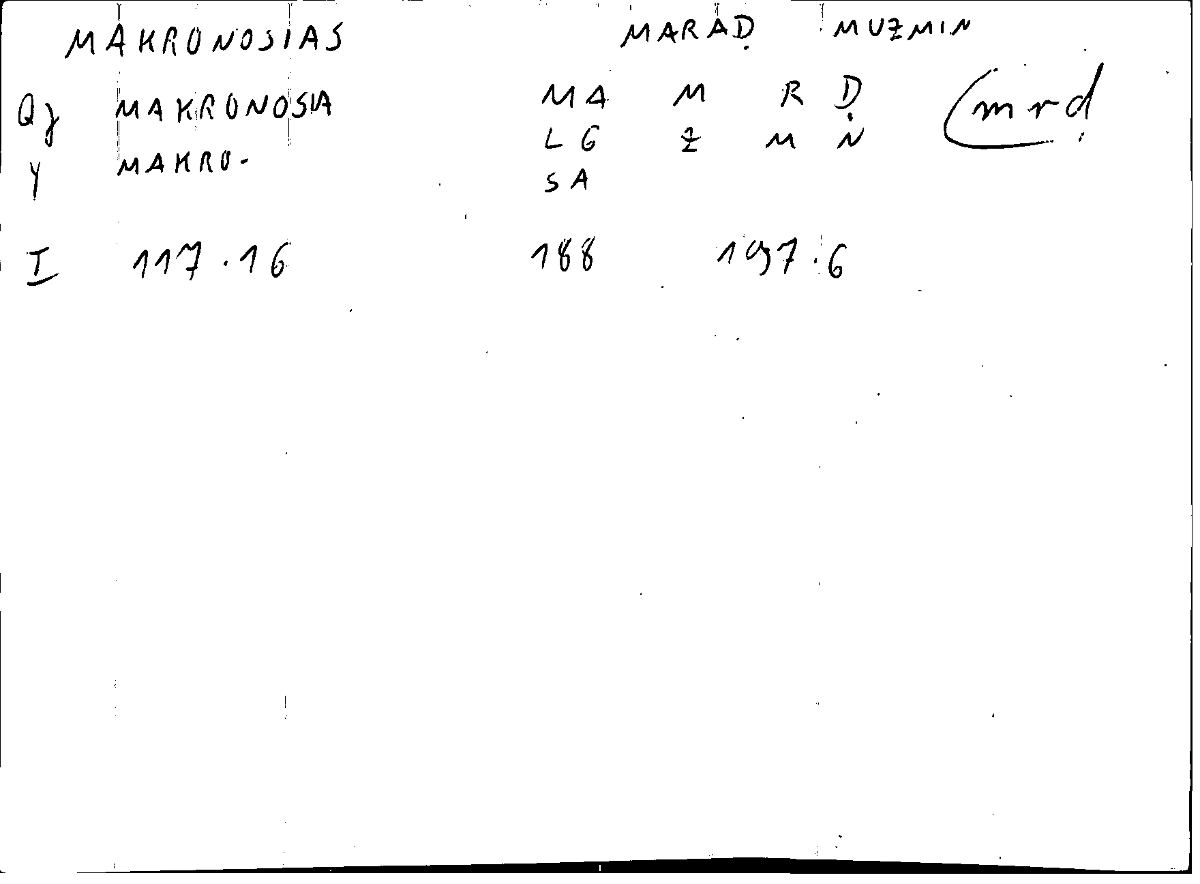 MAKRONOSIAS MARAḌ MUZMIN
Qz MAKRONOSIA MA M R Ḍ (mrḍ
Y MAKRO- LG Z M N
SA
I 117.16 188 197.6